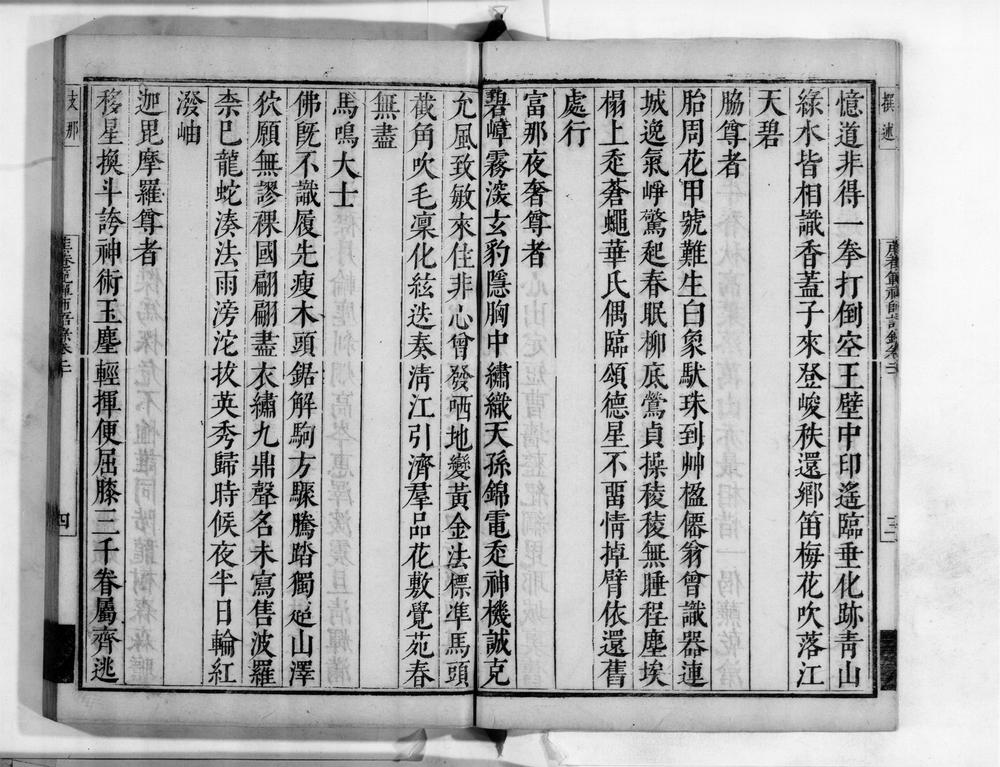 憶道非得一拳打倒空王壁中印遙臨垂化跡青山
綠水皆相識香蓋子來登峻秩還鄉笛梅花吹落江
天碧
脇尊者
胎周花甲號難生白象馱珠到艸楹僊翁曾識器連
城逸氣崢驚起春眠柳底鶯貞操稜稜無腄程塵埃
榻上走蒼蠅華氏偶臨頌德星不畱情掉臂依還舊
處行
富那夜奢尊者
碧嶂霧濴玄豹隱胸中繡織天孫錦電走神機誠克
允風致敏來住非心曾發哂地變黃金法標準馬頭
截角吹毛凜化絃迭奏淸江引濟羣品花敷覺苑春
無盡
馬鳴大士
佛旣不識履先瘦木頭鋸解駒方驟騰踏獨超山澤
狖願無謬裸國翩翩盡衣繡九鼎聲名未寫售波羅
柰巴龍蛇湊法雨滂沱拔英秀歸時候夜半日輪紅
潑岫
迦毘摩羅尊者
移星換斗誇神術玉塵輕揮便屈膝三千眷屬齊逃
撰述
三
支那
四